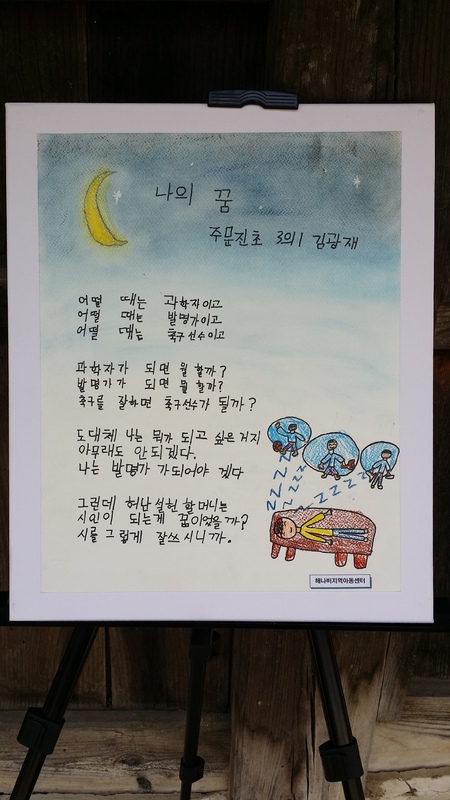 나의 꿈
주문진초 3의1 김광재
어떨 때는 과학자이고
어떨 때는 발명가이고
어떨 때는 축구선수이고
과학자가 되면 뭘 할까?
발명가가 되면 뭘 할까?
축구를 잘하면 축구선수가 될까?
도대체 나는 뭐가 되고 싶은거지
아무래도 안되겠다.
나는 발명가가되어야 겠다
그런데 허난설헌 할머니는
시인이 되는게 꿈이었을까?
시를 그렇게 잘쓰시니까.
zzzz
zzzz
zzzz
해나비지역아동센터